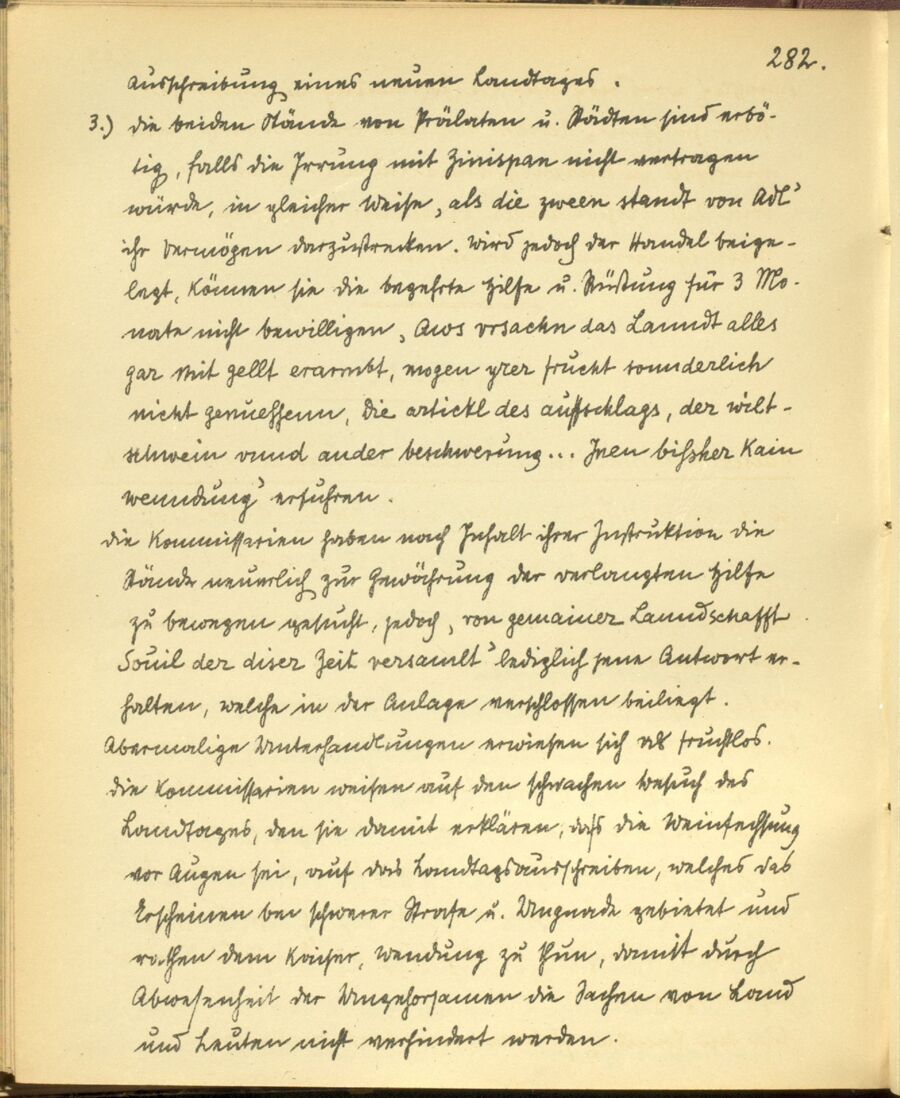 282.
Ausschreibung eines neuen Landtages.
3.) Die beiden Stände von Prälaten u. Städten sind erbö-
tig, falls die Irrung mit Zinispan nicht vertragen
würde, in gleicher Weise „als die zween standt von Adl“
ihr Vermögen darzustrecken. Wird jedoch der Handel beige-
legt, können sie die begehrte Hilfe u. Rüstung für 3 Mo-
nate nicht bewilligen „Aus vrsachn das Lanndt alles
gar mit gellt erarmbt, mogen yrer frucht sonnderlich
nicht genuessenn, die artickl des aufschlags, der wilt-
schwein vnnd ander beschwerung... Inen bissher kain
wenndung“ erfuhren.
Die Kommissarien haben nach Inhalt ihrer Instruktion die
Stände neuerlich zur Gewährung der verlangten Hilfe
zu bewegen gesucht, jedoch „von gemainer Lanndschafft
Souil der diser Zeit versamlt“ lediglich jene Antwort er-
halten, welche in der Anlage verschlossen beiliegt.
Abermalige Unterhandlungen erwiesen sich als fruchtlos.
Die Kommissarien weisen auf den schwachen Besuch des
Landtages, den sie damit erklären, dass die Weinfechsung
vor Augen sei, auf das Landtagsausschreiben, welches das
Erscheinen bei schwerer Strafe u. Ungnade gebietet und
rathen dem Kaiser, Wendung zu thun, damit durch
Abwesenheit der Ungehorsamen die Sachen von Land
und Leuten nicht verhindert werden.